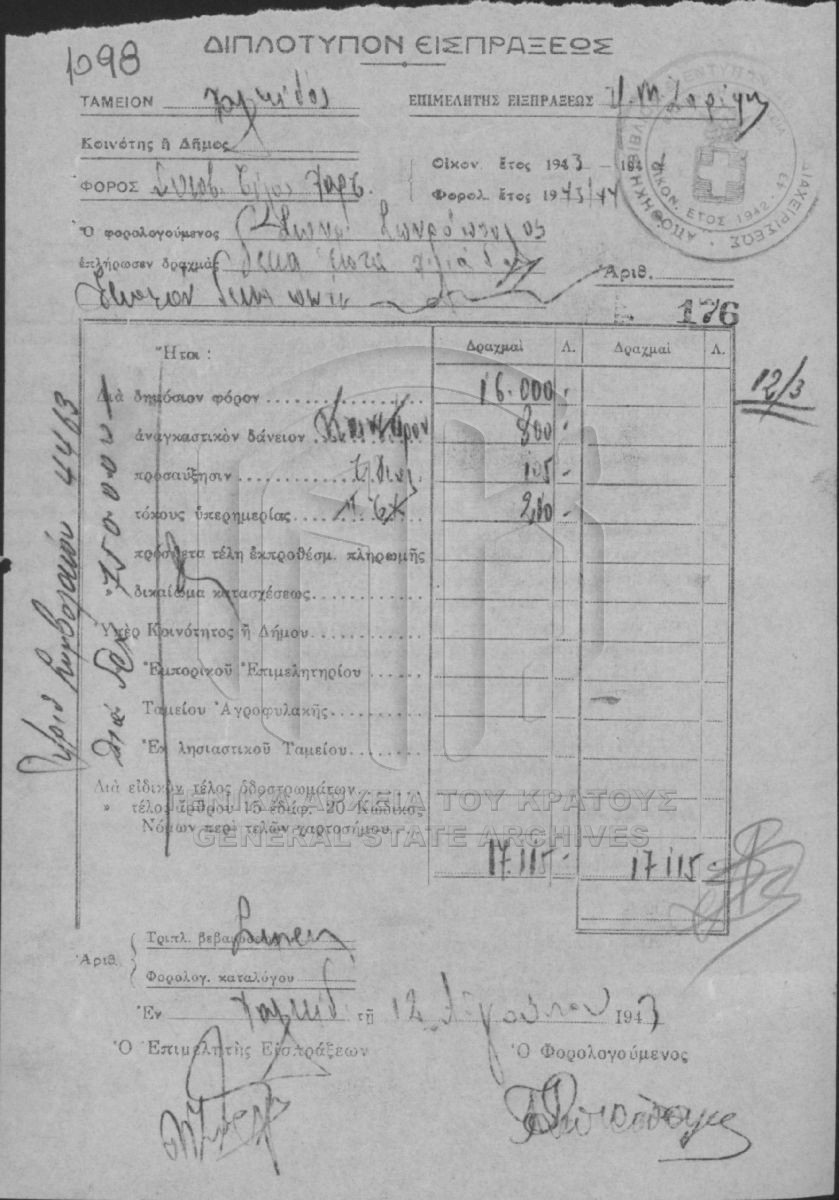 1098
ΔΙΠΛΟΤΥΠΟΝ ΕΙΣΠΡΑΞΕΩΣ
ΤΑΜΕΙΟΝ Χαλκίδος
ΕΠΙΜΕΛΗΤΗΣ ΕΙΣΠΡΑΞΕΩΣ
Κοινότης ἢ Δῆμος
ΦΟΡΟΣ
Οἰκον. ἔτος 1943 - 194
Φορολ. ἔτος 1943/44
Ὁ φορολογούμενος
ἐπλήρωσεν δραχμὰς δέκα ἑπτά χιλιάδες
ἑκατόν δέκα πέντε
Ἀριθ.
176
ΟΙΚΟΝ. ΕΤΟΣ 1942-43
ΔΙΑΧΕΙΡΙΣΕΩΣ
Ἤτοι : Δραχμαὶ Λ. Δραχμαὶ Λ.
12/3
Διὰ δημόσιον φόρον 16.000 -
ἀναγκαστικὸν δάνειον 800 -
προσαύξησιν 105 -
τόκους ὑπερημερίας 210 -
πρόσθετα τέλη ἐκπροθέσμ. πληρωμῆς
δικαίωμα κατασχέσεως
Ὑπὲρ Κοινότητος ἢ Δήμου
Ἐμπορικοῦ Ἐπιμελητηρίου
Ταμείου Ἀγροφυλακῆς
Ἐκ λησιαστικοῦ Ταμείου
Διὰ εἰδικὸν τέλος ὁδοστρωμάτων
» τέλος ἄρθρου 15 ἐδάφ. 20 Κώδικος
Νόμων περὶ τελῶν χαρτοσήμου
17.115 - 17.115 -
Ἀριθ. συμβολαίου 4463
διὰ δρχ. 750.000
ΓΕΝΙΚΑ ΑΡΧΕΙΑ ΤΟΥ ΚΡΑΤΟΥΣ
GENERAL STATE ARCHIVES
Ἀριθ.
Τριπλ. βεβαιώσεως
Φορολογ. καταλόγου
Ἐν Χαλκίδι τῇ 12 Αὐγούστου 1943
Ὁ Ἐπιμελητὴς Εἰσπράξεων
Ὁ Φορολογούμενος